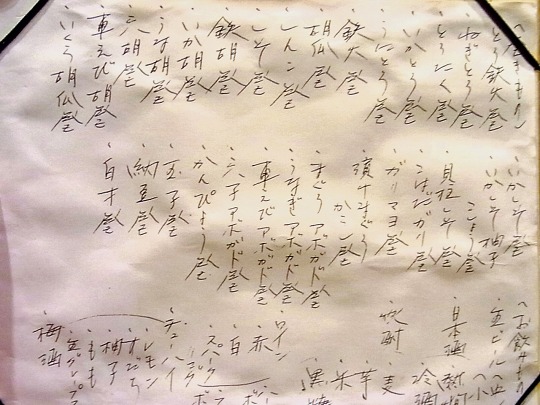 とろ鉄火巻
ねぎとろ巻
とろたく巻
いかとろ巻
うにとろ巻
鉄火巻
胡瓜巻
しんこ巻
しそ巻
鉄胡巻
いか胡巻
うな胡巻
穴胡巻
車えび胡巻
いくら胡瓜巻
いかしそ巻
いかしそ柚子
こしょう巻
貝柱しそ巻
こはだガリ巻
ガリマヨ巻
漬けまぐろ
かこ巻
まぐろアボガド巻
うなぎアボガド巻
車えびアボガド巻
穴子アボガド巻
かんぴょう巻
玉子巻
納豆巻
白才巻
〈お飲みもの〉
生ビール
日本酒
冷酒
焼酎
麦
芋
米
黒糖
ワイン
赤
白
チューハイ
レモン
すだち
柚子
もも
梅酒